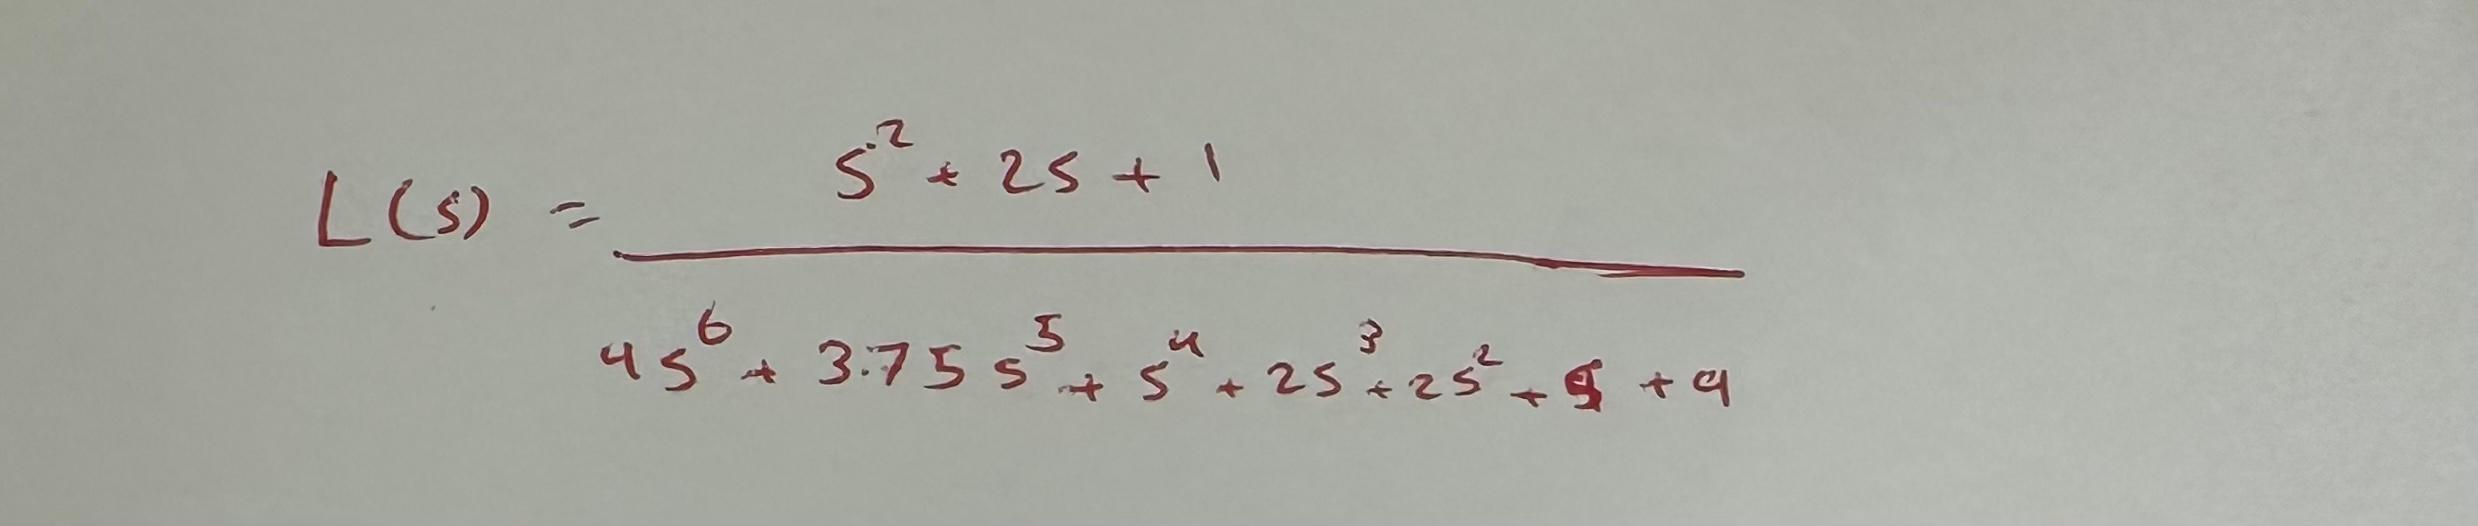 L(s) = s² + 2s + 1
4s⁶ + 3.75s⁵ + s⁴ + 2s³ + 2s² + s + 4